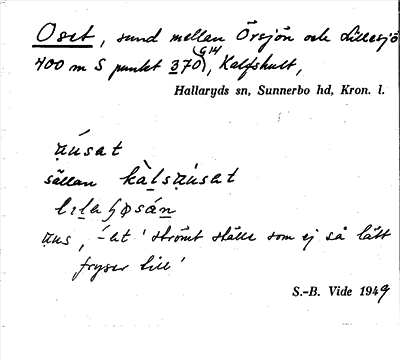 Oset, sund mellan Örsjön och Lillesjö
400 m S punkt 370 (G14), Kalfshult,
Hallaryds sn, Sunnerbo hd, Kron. l.
ụ́sat
sällan kàlsụ́sat
lịla ɧøsán
ụs, -et 'strömt ställe som ej så lätt
fryser till'
S.-B. Vide 1949